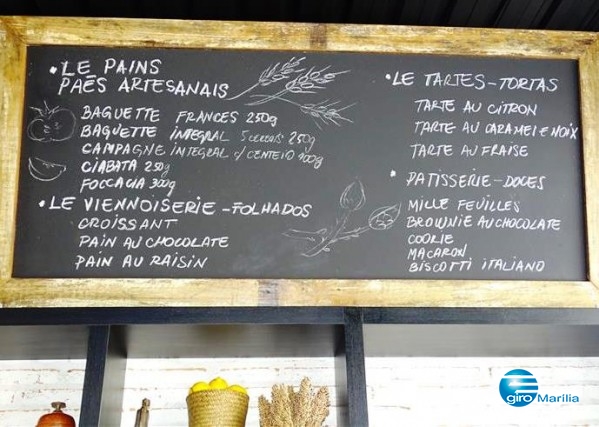 • LE PAINS
PAẼS ARTESANAIS
BAGUETTE FRANCES 250g
BAGUETTE INTEGRAL 5 cereais 250g
CAMPAGNE INTEGRAL c/ CENTEIO 400g
CIABATA 250g
FOCCACIA 300g
• LE VIENNOISERIE - FOLHADOS
CROISSANT
PAIN AU CHOCOLATE
PAIN AU RAISIN
• LE TARTES - TORTAS
TARTE AU CITRON
TARTE AU CARAMEL E NOIX
TARTE AU FRAISE
• PATISSERIE - DOCES
MILLE FEUILLES
BROWNIE AU CHOCOLATE
COOKIE
MACARON
BISCOTTI ITALIANO
giro Marília